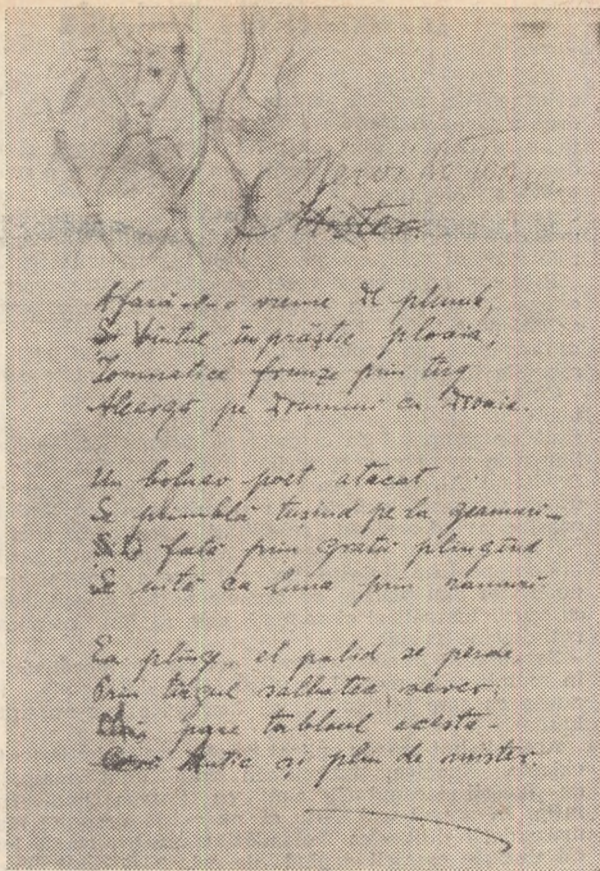 Nervi de toamnă
Mister.
Afară-e o vreme de plumb,
Și vîntul împrăștie ploaia,
Tomnatice frunze prin tîrg
Aleargă pe drumuri cu droaia.
Un bolnav poet atacat
Se plimblă tușind pe la geamuri—
fată prin gratii plîngînd
Se uită ca luna prin ramuri
Ea plînge, el palid se perde
Prin tîrgul salbatec, sever;
pare tabloul acesta—
Antic și plin de mister.